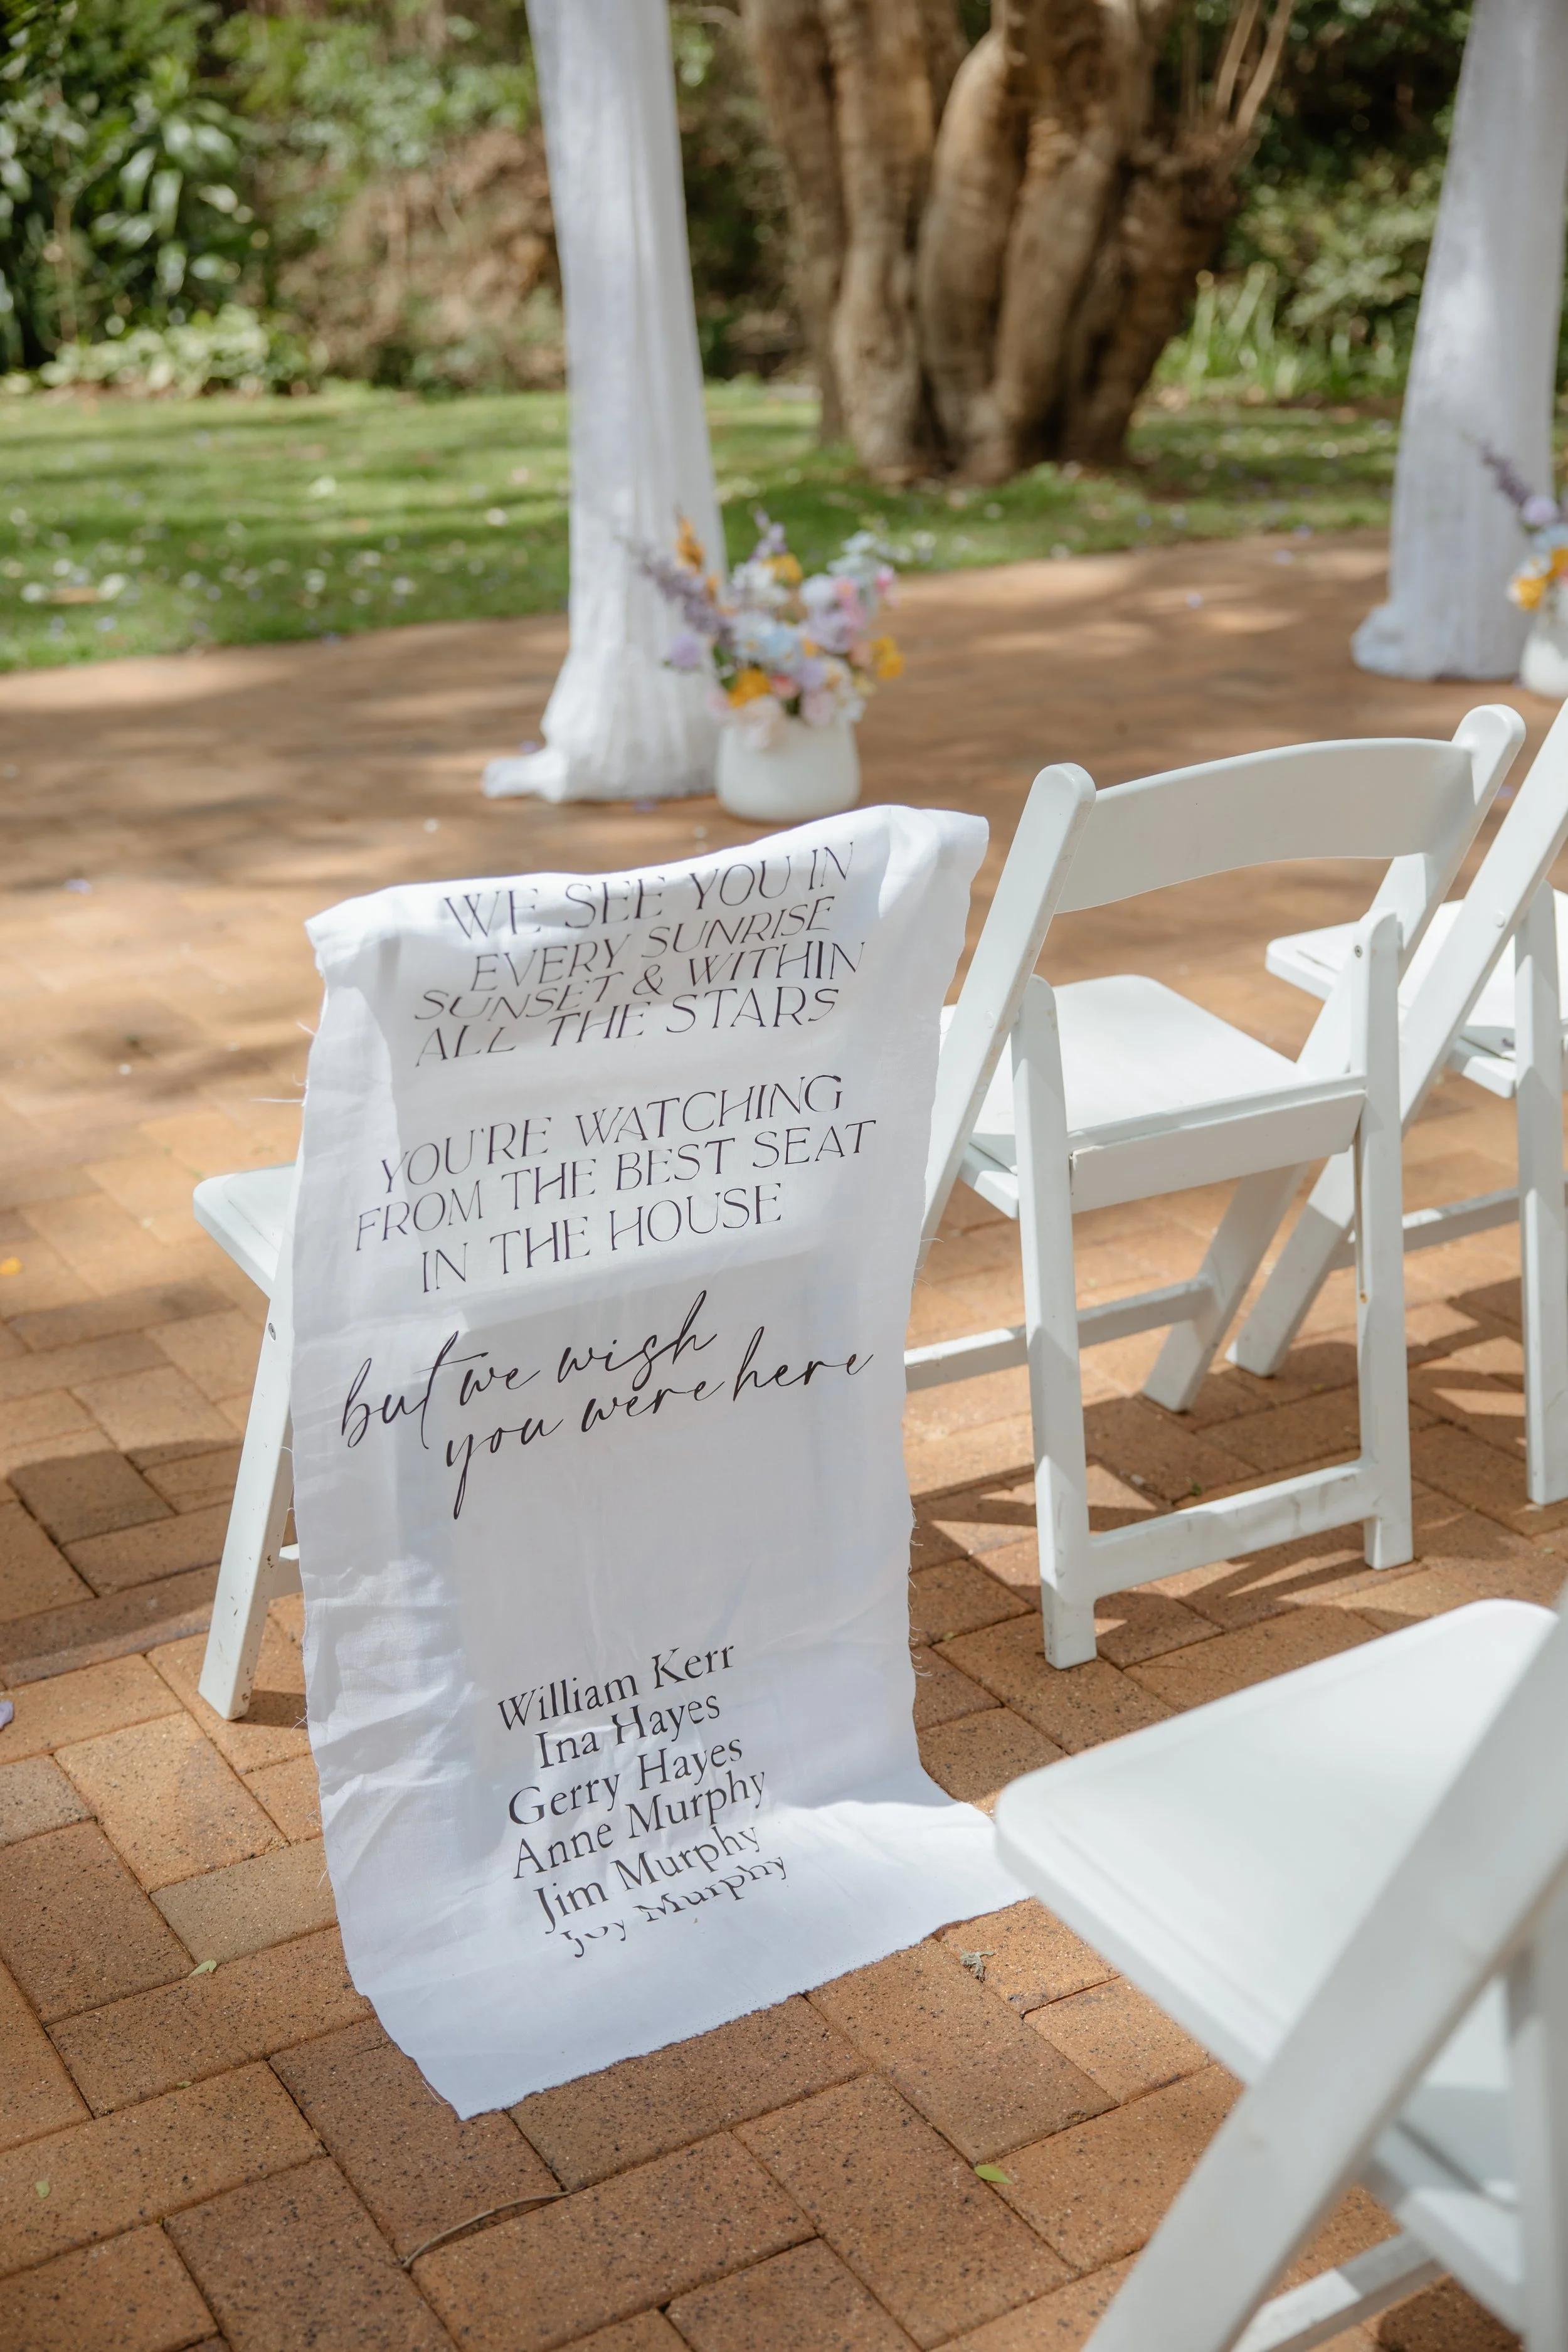 WE SEE YOU IN
EVERY SUNRISE
SUNSET & WITHIN
ALL THE STARS
YOU'RE WATCHING
FROM THE BEST SEAT
IN THE HOUSE
but we wish
you were here
William Kerr
Ina Hayes
Gerry Hayes
Anne Murphy
Jim Murphy
Joy Murphy